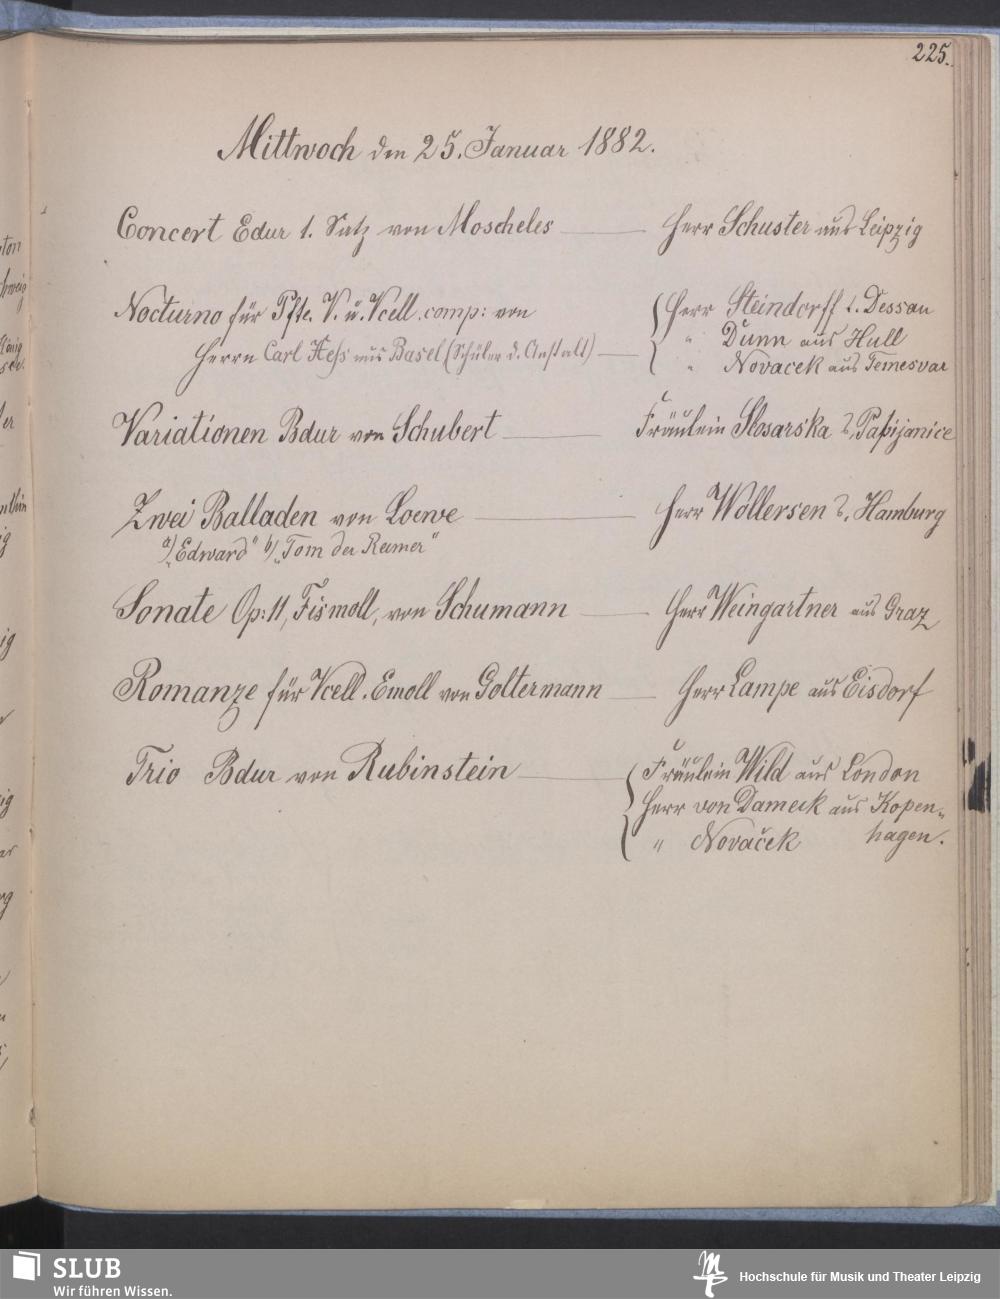 225.
Mittwoch den 25. Januar 1882.
Concert Edur 1. Satz von Moscheles — Herr Schuster aus Leipzig
Nocturno für Pfte. V. u. Vcell. comp: von
Herrn Carl Hess aus Basel (Schüler d. Anstalt) —
Herr Steindorff a. Dessau
" Dunn aus Hull
" Novacek aus Temesvar
Variationen Bdur von Schubert — Fräulein Slosarska a. Pabijanice
Zwei Balladen von Loewe — Herr Wollersen a. Hamburg
a) „Edward" b) „Tom der Reimer"
Sonate Op: 11, Fismoll, von Schumann — Herr Weingartner aus Graz
Romanze für Vcell. Emoll von Goltermann — Herr Lampe aus Eisdorf
Trio Bdur von Rubinstein — Fräulein Wild aus London
Herr von Dameck aus Kopen-
" Novaček hagen.
SLUB
Wir führen Wissen.
Hochschule für Musik und Theater Leipzig